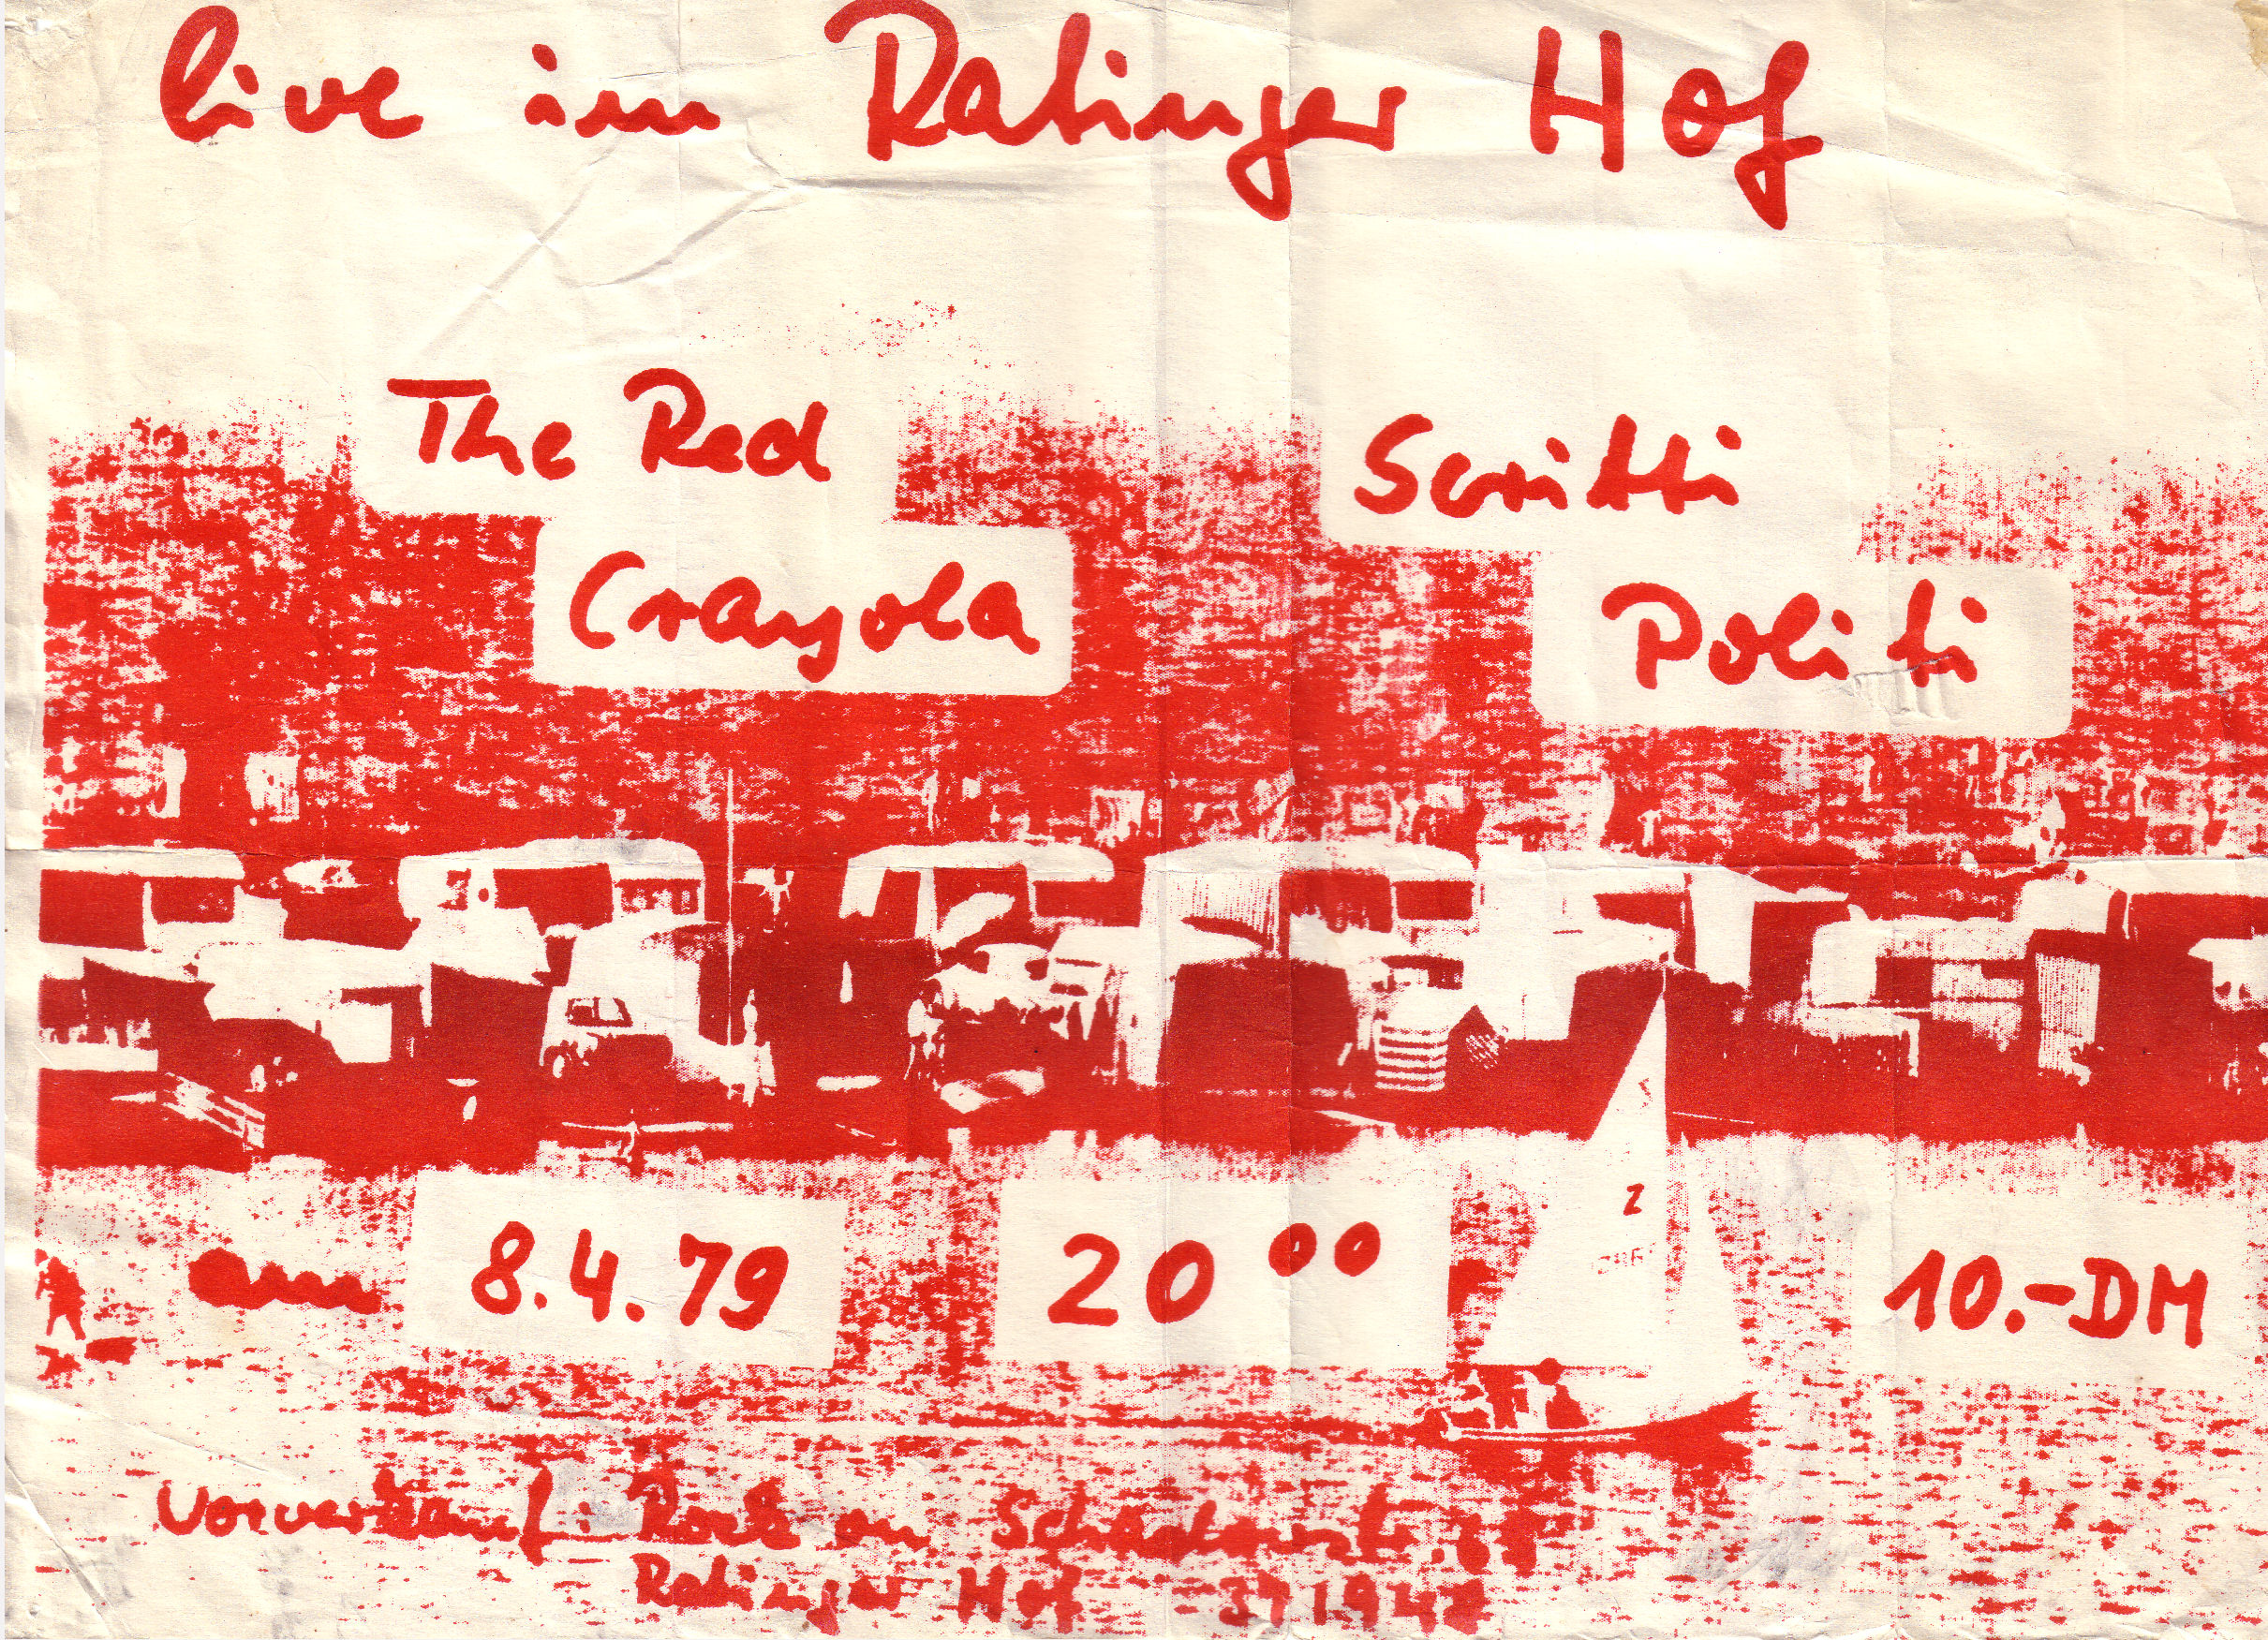 live im Ratinger Hof
The Red
Crayola
Scritti
Politi
Z
am 8.4.79 20⁰⁰ 10.-DM
Vorverkauf: Rock on
Ratinger Hof